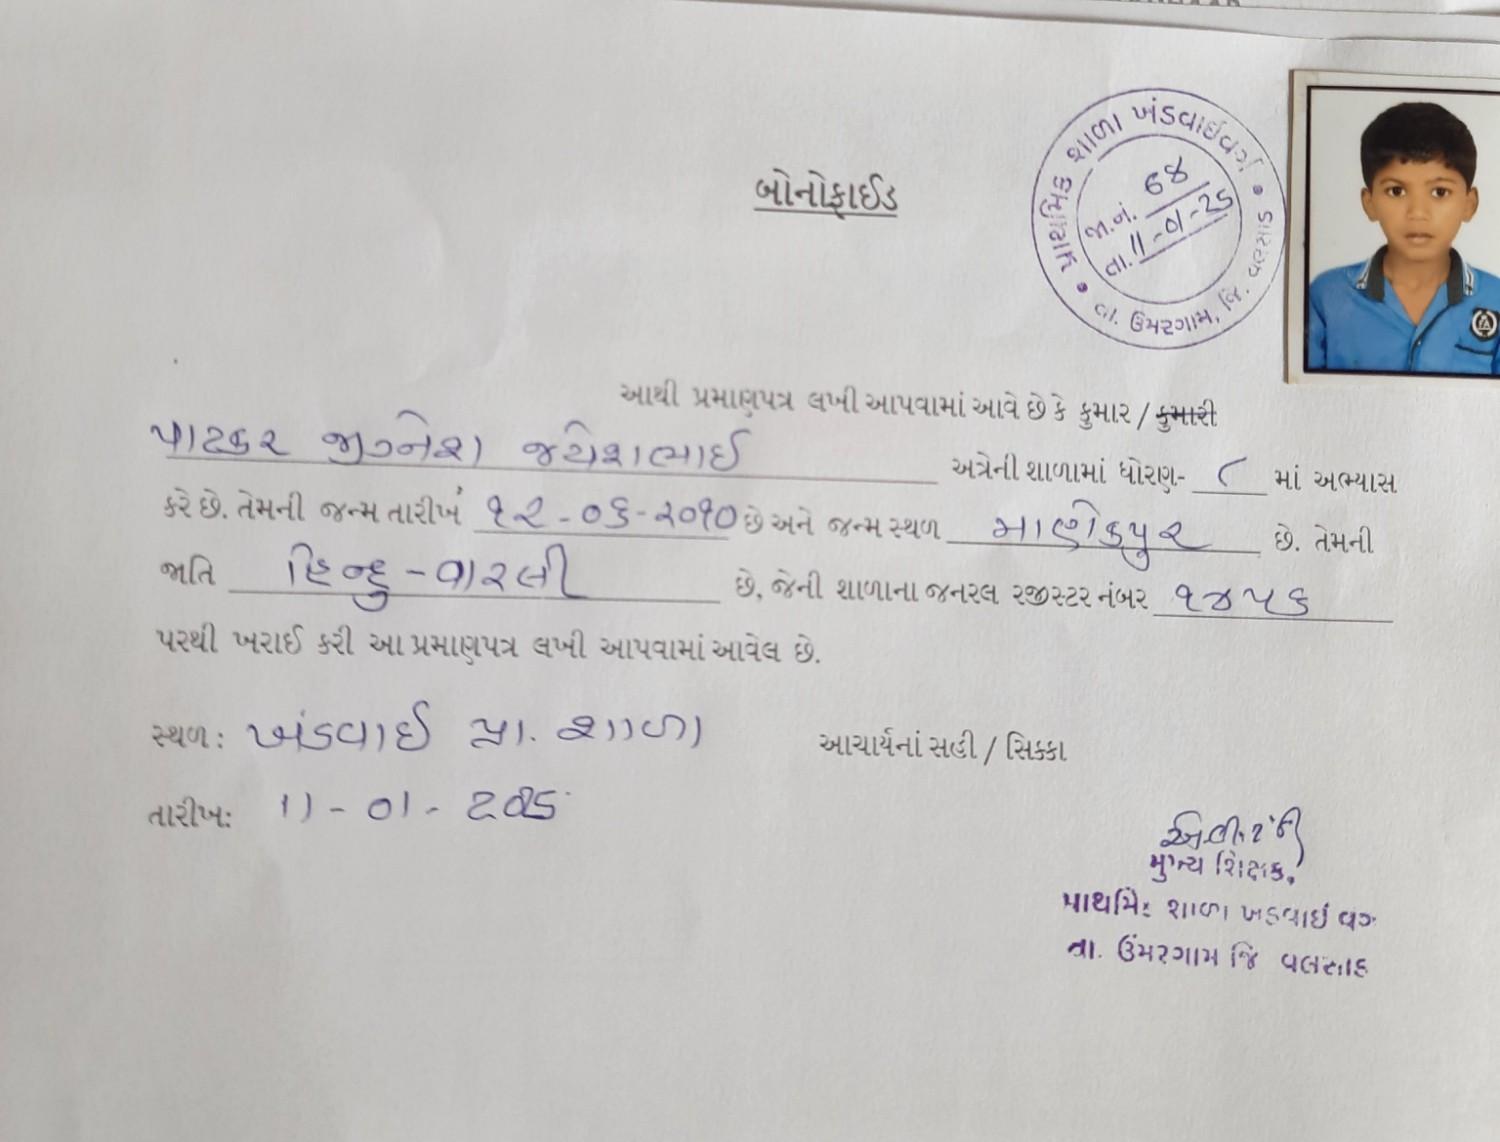 બોનોફાઈડ
પ્રાથમિક શાળા ખંડવાઈવગ
જા.નં. 68
તા. 11-01-25
તા. ઉમરગામ, જિ. વલસાડ
આથી પ્રમાણપત્ર લખી આપવામાં આવે છે કે કુમાર / કુમારી
પાટકર જીગ્નેશ જયેશભાઈ અત્રેની શાળામાં ધોરણ- ૮ માં અભ્યાસ
કરે છે. તેમની જન્મ તારીખં ૧૨-૦૬-૨૦૧૦ છે અને જન્મ સ્થળ માણેકપુર છે. તેમની
જાતિ હિન્દુ-વારલી છે, જેની શાળાના જનરલ રજીસ્ટર નંબર ૧૪૫૬
પરથી ખરાઈ કરી આ પ્રમાણપત્ર લખી આપવામાં આવેલ છે.
સ્થળ: ખંડવાઈ પ્રા. શાળા
આચાર્યનાં સહી / સિક્કા
તારીખ: 11-01-2025
મુખ્ય શિક્ષક,
પ્રાથમિક શાળા ખંડવાઈ વગ
તા. ઉંમરગામ જિ વલસાડ